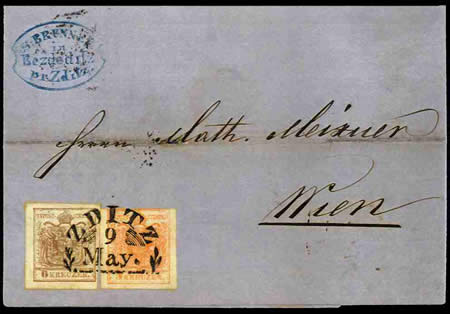 S. BRENNER
in
Bezdeditz
pr Zditz
Herrn Math. Meixner
Wien
ZDITZ
9
May.
6 KREUZER.
KREUZER.